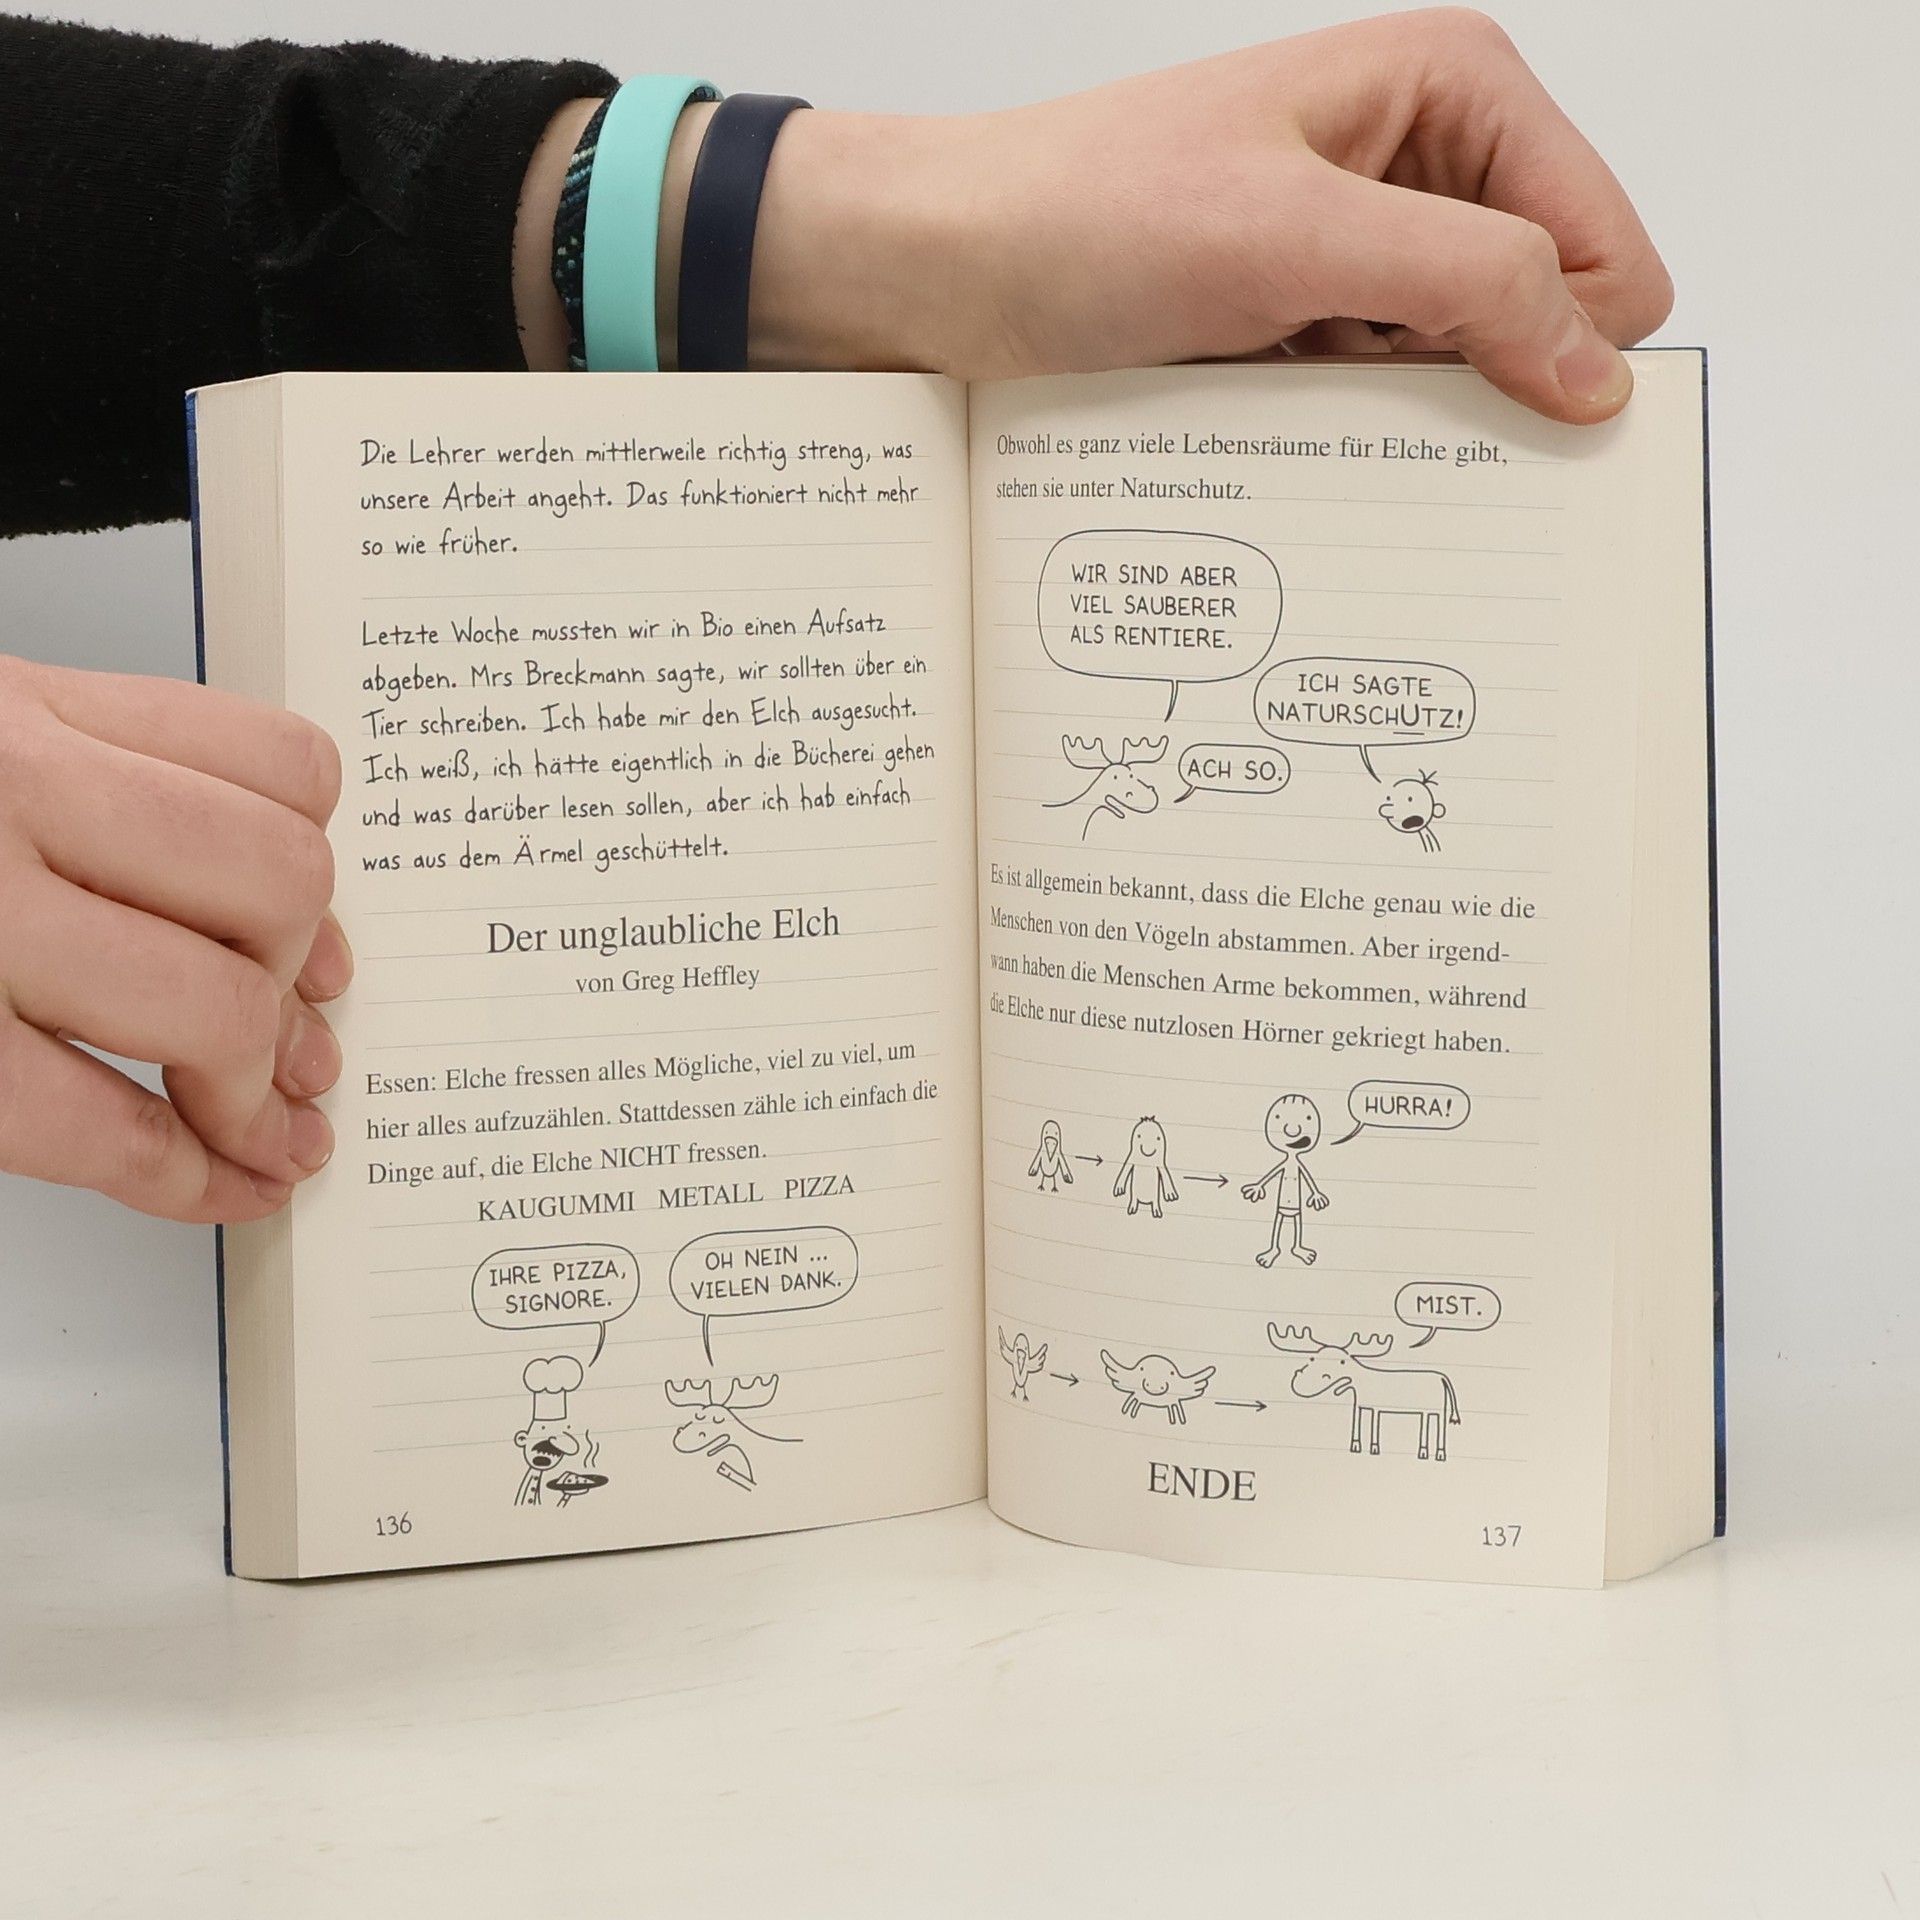 Die Lehrer werden mittlerweile richtig streng, was
unsere Arbeit angeht. Das funktioniert nicht mehr
so wie früher.
Letzte Woche mussten wir in Bio einen Aufsatz
abgeben. Mrs Breckmann sagte, wir sollten über ein
Tier schreiben. Ich habe mir den Elch ausgesucht.
Ich weiß, ich hätte eigentlich in die Bücherei gehen
und was darüber lesen sollen, aber ich hab einfach
was aus dem Ärmel geschüttelt.
Der unglaubliche Elch
von Greg Heffley
Essen: Elche fressen alles Mögliche, viel zu viel, um
hier alles aufzuzählen. Stattdessen zähle ich einfach die
Dinge auf, die Elche NICHT fressen.
KAUGUMMI METALL PIZZA
IHRE PIZZA,
SIGNORE.
OH NEIN ...
VIELEN DANK.
136
Obwohl es ganz viele Lebensräume für Elche gibt,
stehen sie unter Naturschutz.
WIR SIND ABER
VIEL SAUBERER
ALS RENTIERE.
ICH SAGTE
NATURSCHUTZ!
ACH SO.
Es ist allgemein bekannt, dass die Elche genau wie die
Menschen von den Vögeln abstammen. Aber irgend-
wann haben die Menschen Arme bekommen, während
die Elche nur diese nutzlosen Hörner gekriegt haben.
HURRA!
MIST.
ENDE
137